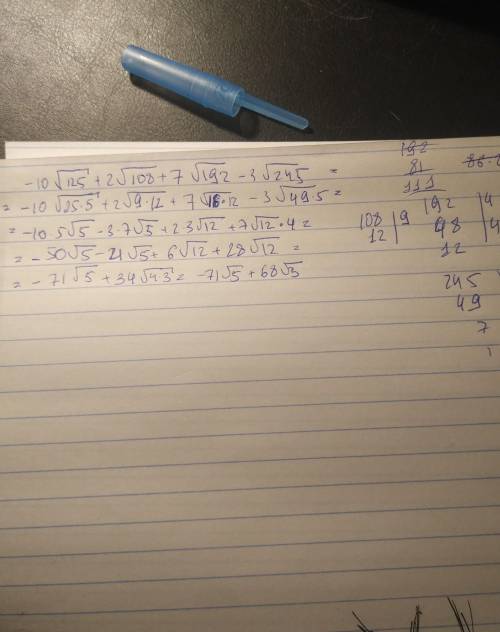 -10√125 + 2√108 + 7√192 - 3√245 =
= -10√25·5 + 2√9·12 + 7√16·12 - 3√49·5 =
= -10·5√5 - 3·7√5 + 2·3√12 + 7√12·4 =
= -50√5 - 21√5 + 6√12 + 28√12 =
= -71√5 + 34√4·3 = -71√5 + 68√3
192
81
111
108 | 9
12
192 | 4
48 | 4
12
245
49
7